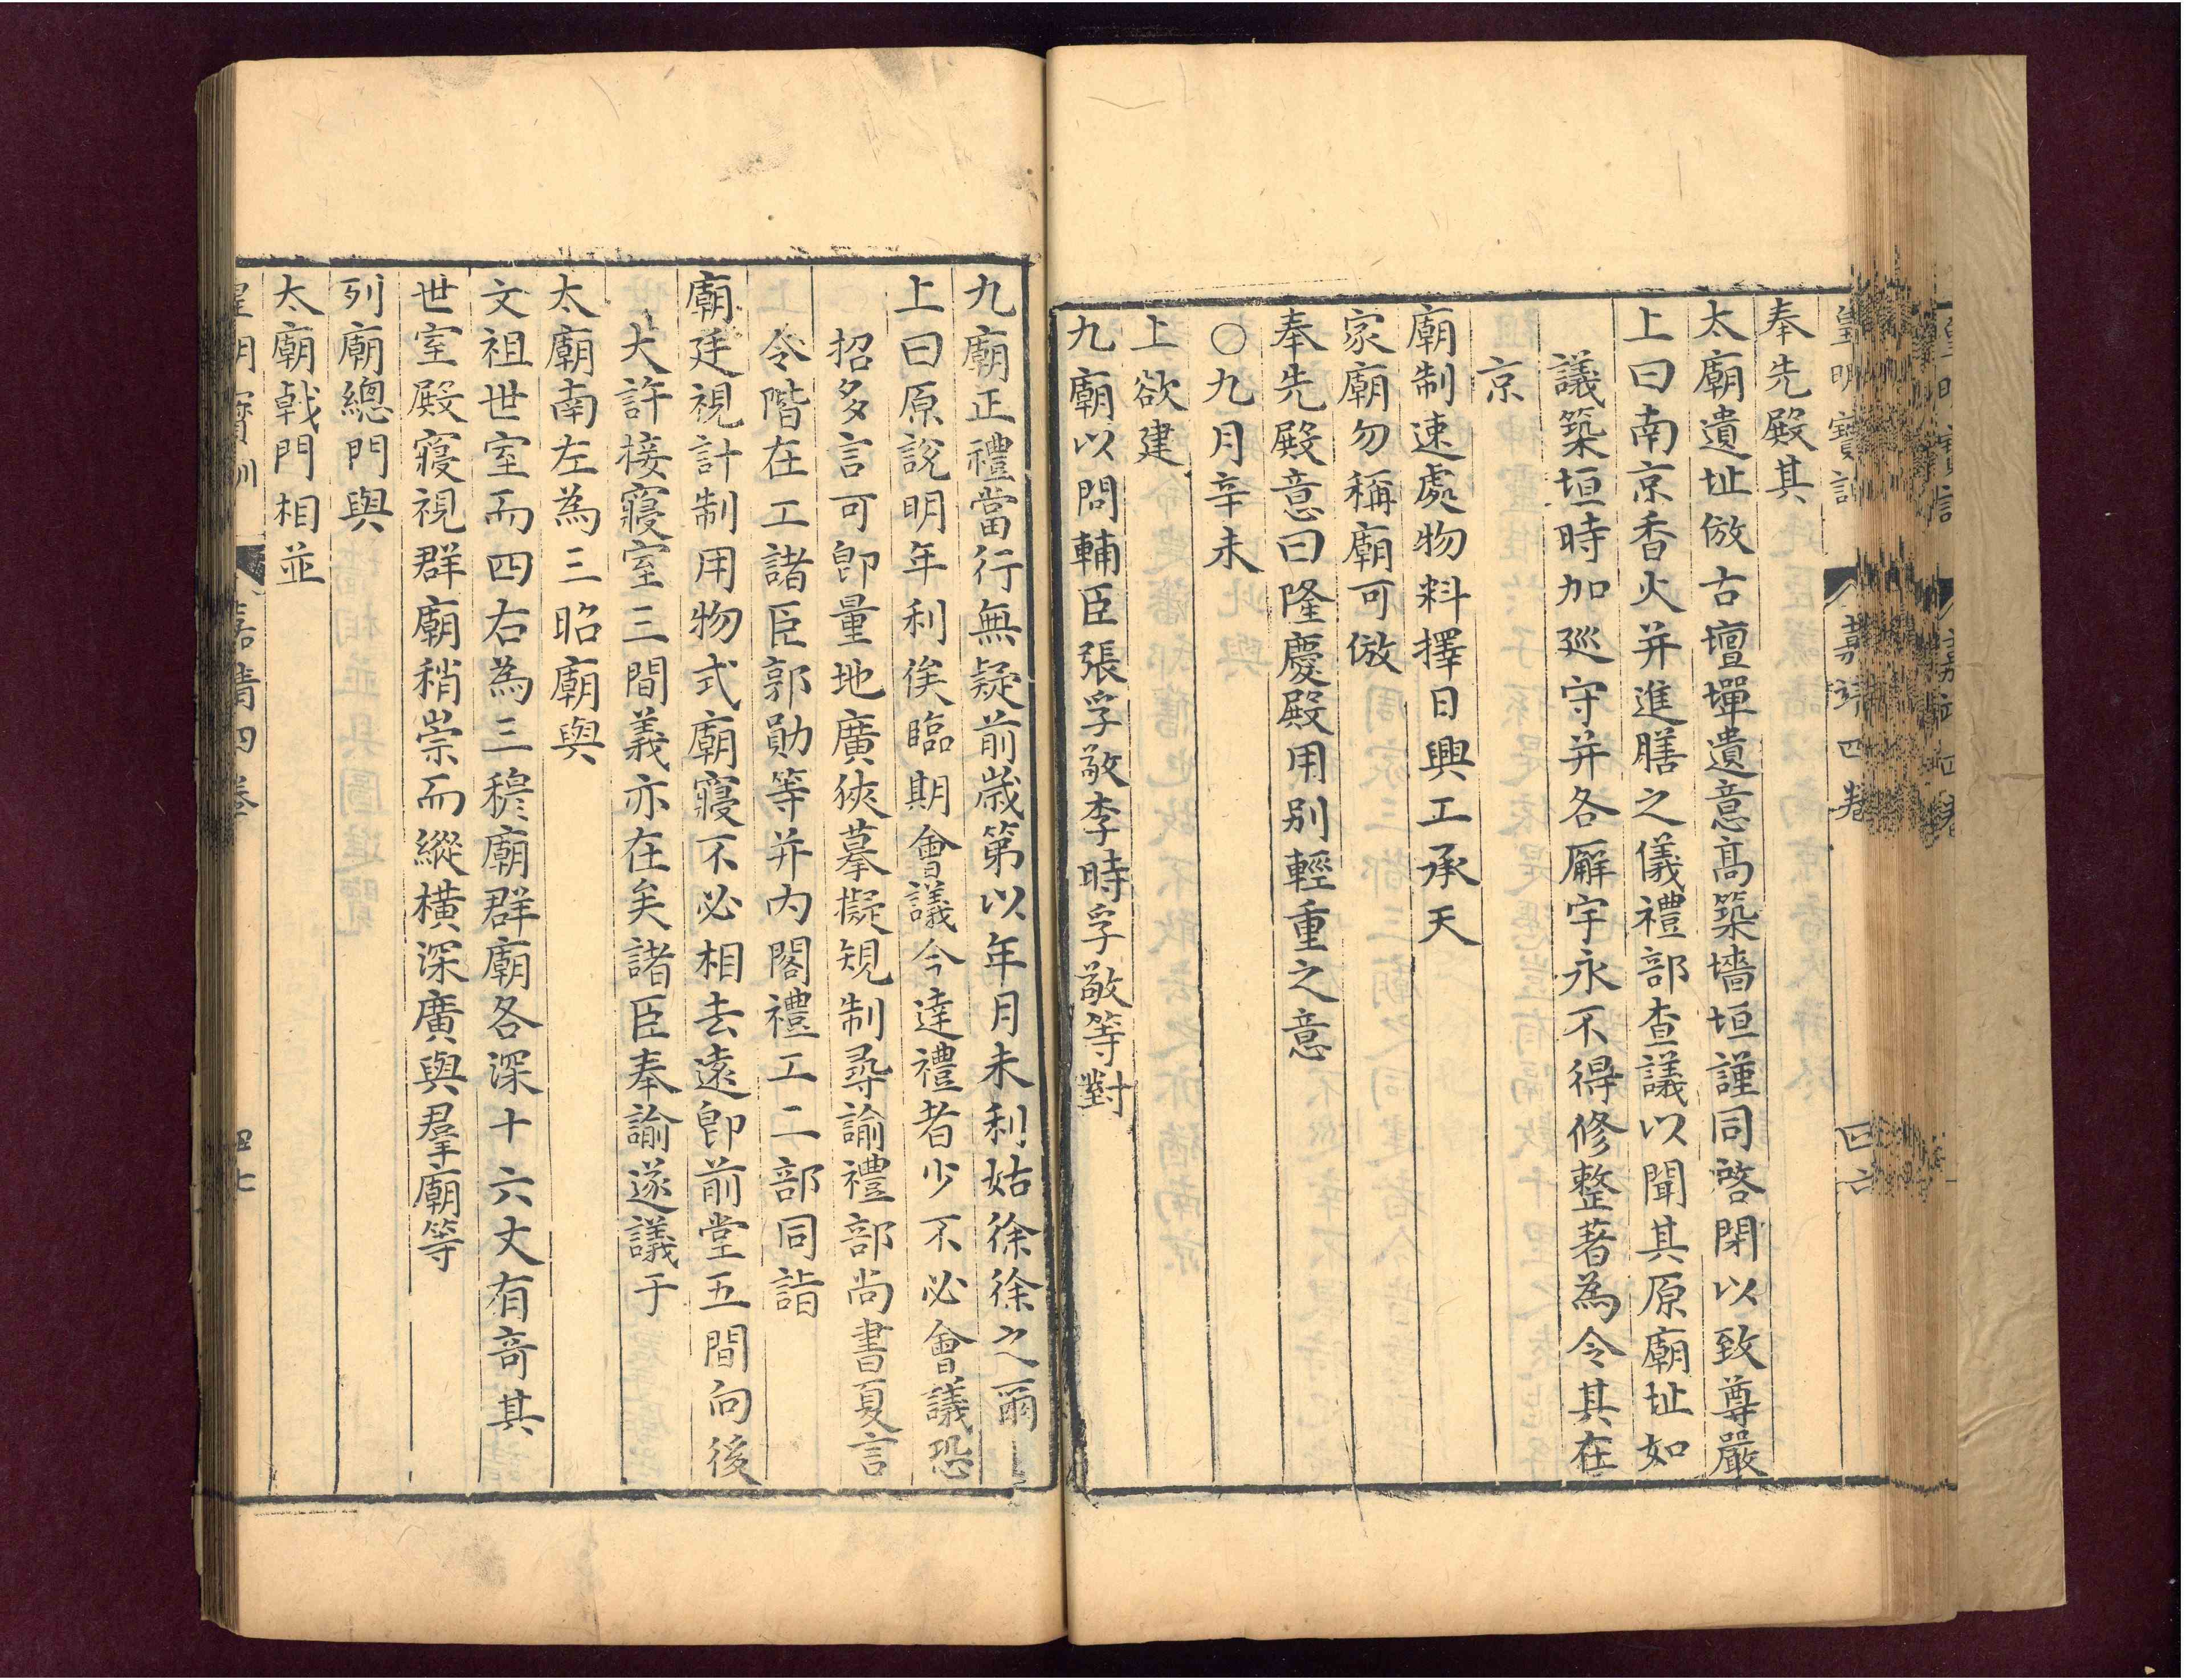 皇明寶訓 嘉靖四卷 四六
奉先殿其
太廟遺址倣古壇墠遺意高築墻垣謹同啓閉以致尊嚴
上曰南京香火并進膳之儀禮部查議以聞其原廟址如
議築垣時加廵守并各廨宇永不得修整著為令其在
京
廟制速處物料擇日興工承天
家廟勿稱廟可倣
奉先殿意曰隆慶殿用别輕重之意
○九月辛未
上欲建
九廟以問輔臣張孚敬李時孚敬等對
九廟正禮當行無疑前歲第以年月未利姑徐徐之爾
上曰原說明年利俟臨期會議今達禮者少不必會議恐
招多言可即量地廣狹摹擬規制尋諭禮部尚書夏言
令階在工諸臣郭勛等并内閣禮工二部同詣
廟廷視計制用物式廟寢不必相去遠即前堂五間向後
大許接寢室三間義亦在矣諸臣奉諭遂議于
太廟南左為三昭廟與
文祖世室而四右為三穆廟群廟各深十六丈有竒其
世室殿寢視群廟稍崇而縱橫深廣與羣廟等
列廟總門與
太廟戟門相並
皇明寶訓 嘉靖四卷 四七